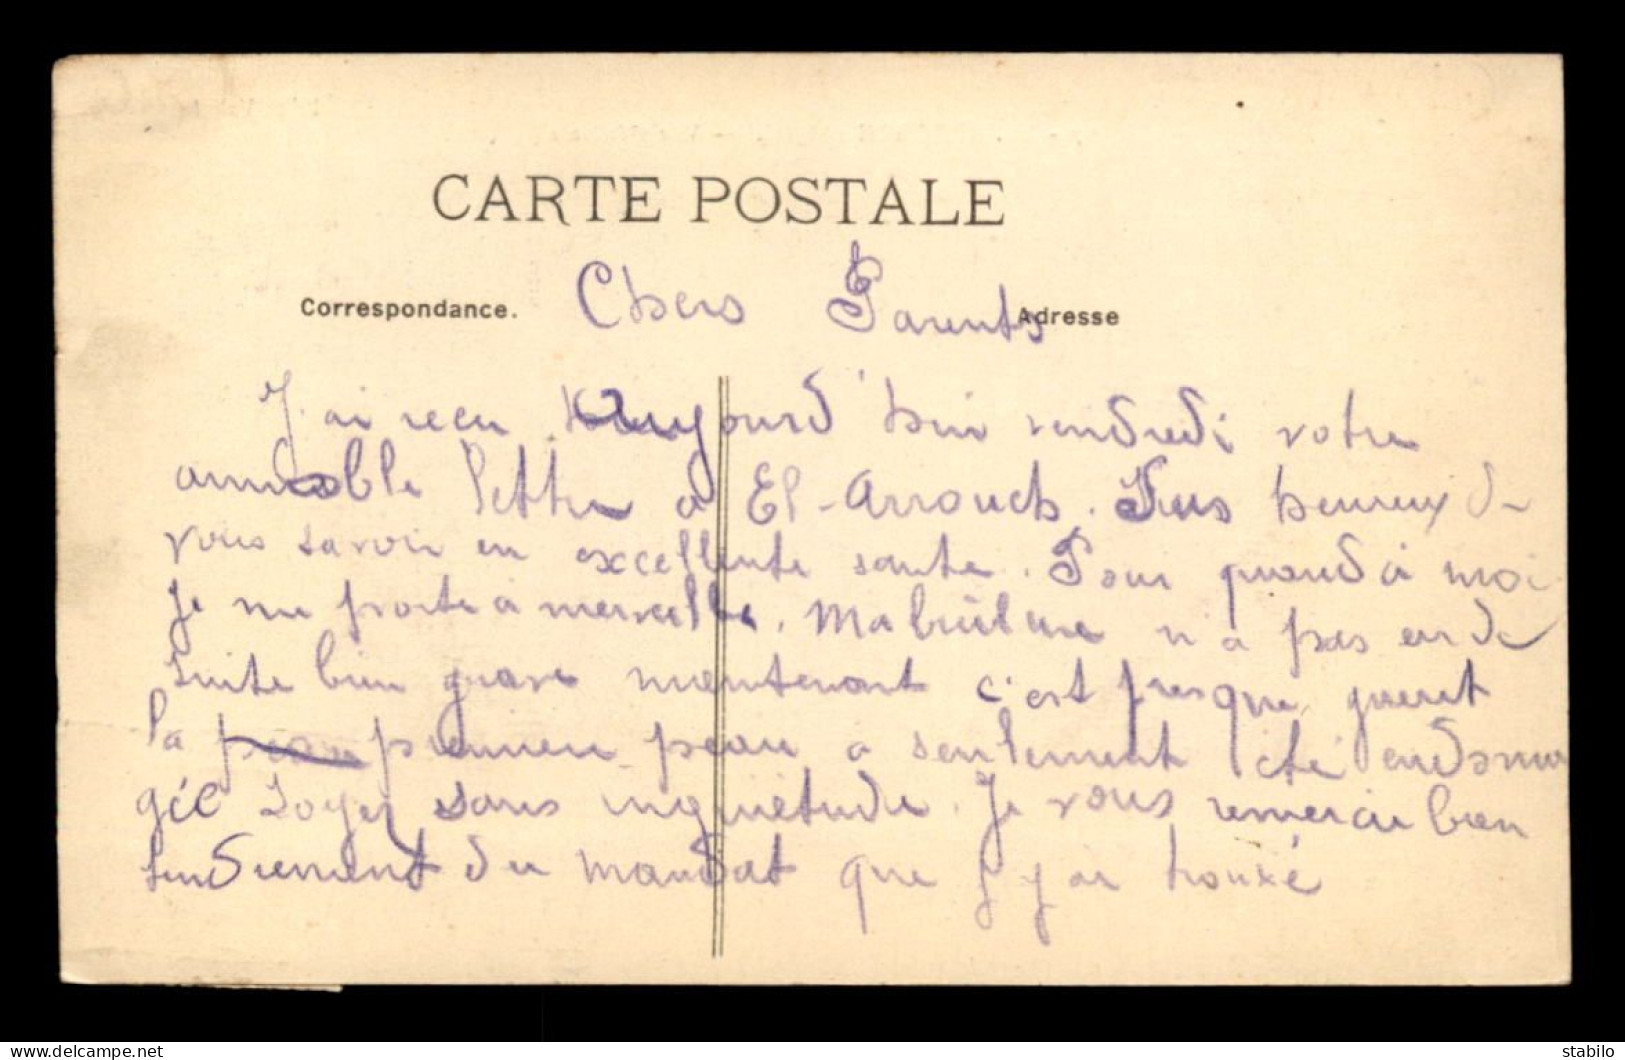 CARTE POSTALE
Correspondance.
Adresse
Chers Parents
J'ai reçu aujourd'hui vendredi votre
aimable lettre à El-Arrouch. Suis heureux de
vous savoir en excellente sante. Pour quand à moi
je me porte à merveille. Ma brulure n'a pas eu de
suite bien grave maintenant c'est presque gueret
la premiere peau a seulement été endoma
géé soyez sans inquiétude. Je vous remercie bien
tendrement du mandat que j'y ai trouvé
delcampe.net
stabilo